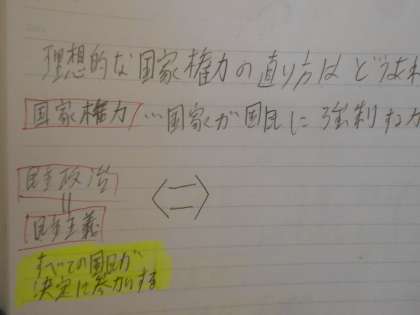 理想的な国家権力の直り方はどうなれ
国家権力…国家が国民に強制する力
民主政治
||
民主主義
すべての国民が
決定に参加する